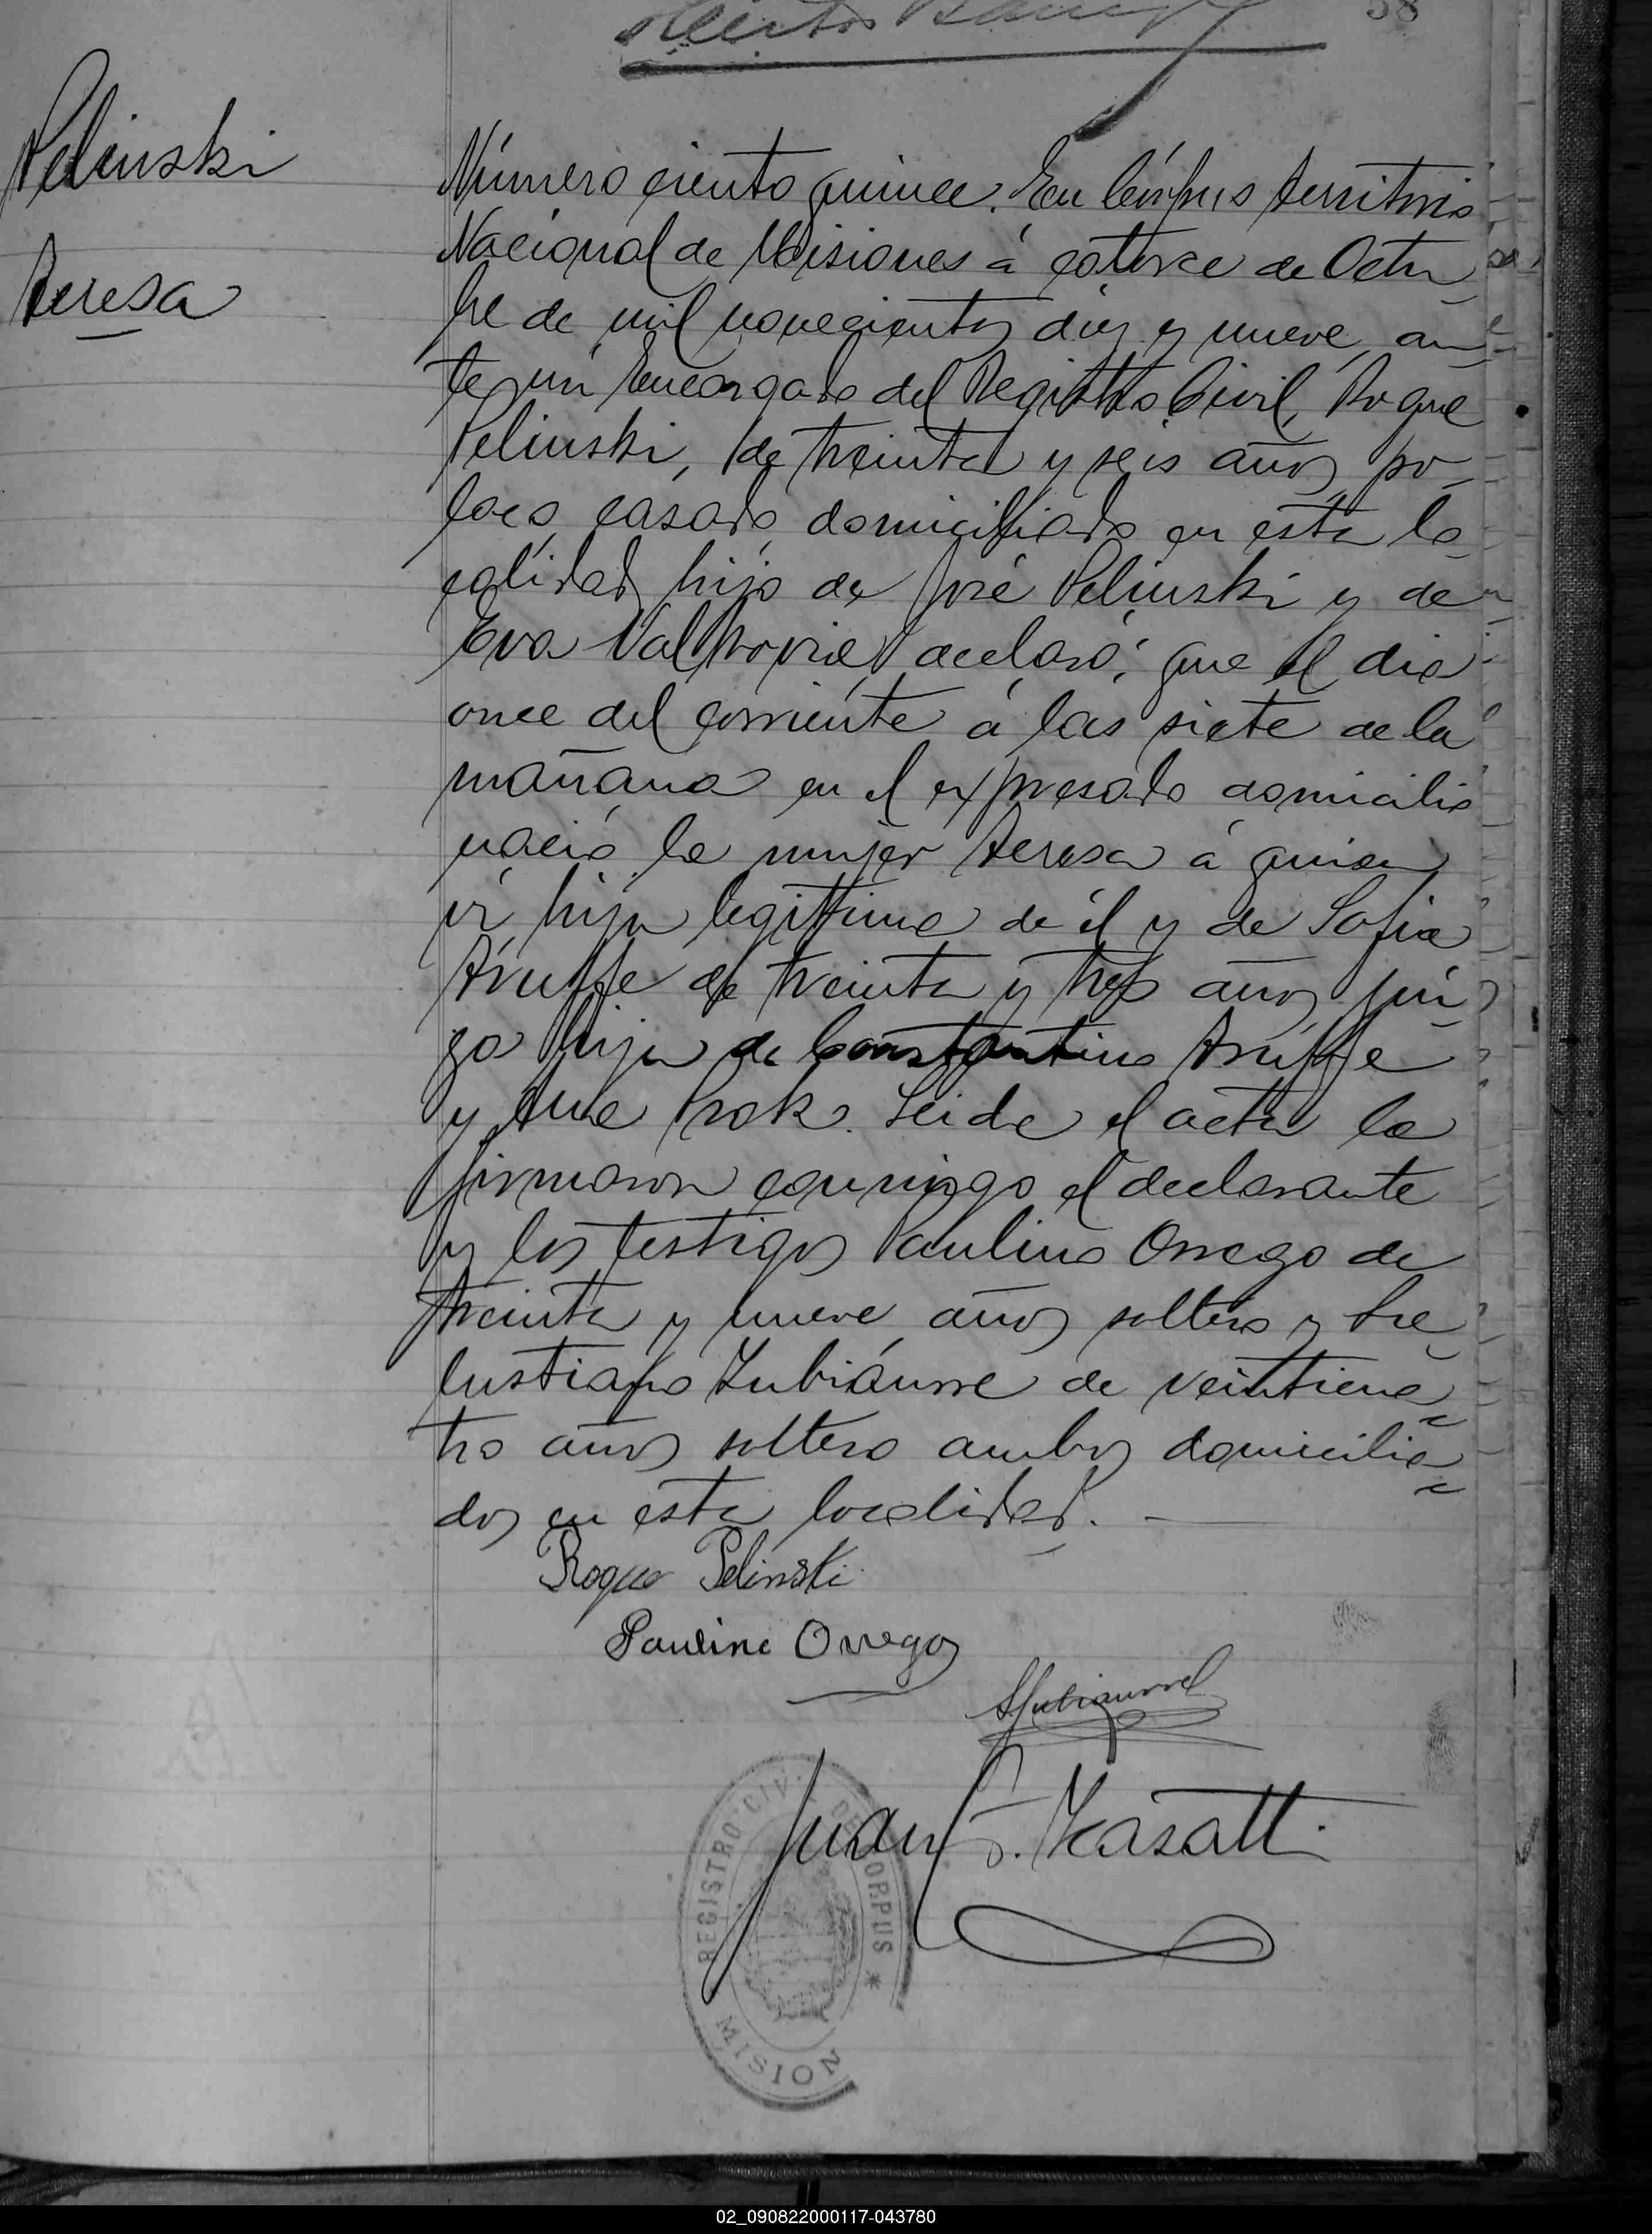 58
Pelinski
Teresa
Número ciento quince. En Córpus territorio
Nacional de Misiones á catorce de Octu
bre de mil novecientos diez y nueve, an
te mi Encargado del Registro Civil, Roque
Pelinski, de treinta y seis años, po
laco, casado, domiciliado en esta lo
calidad, hijo de José Pelinski y de
Eva declaró: que el dia
once del corriente á las siete de la
mañana en el expresado domicilio
nació la mujer Teresa á quien
ví hija legitima de él y de Sofia
de treinta y tres años,
hija de Constantino
y Leida el acta la
firmaron conmigo el declarante
y los testigos Paulino Orrego de
treinta y nueve años soltero y Sa
lustiano Zubiaurre de veinticua
tro años soltero ambos domicilia
dos en esta localidad. —
Roque Pelinski
Paulino Orrego
SZubiaurre
Juan
REGISTRO CIVIL DE CORPUS * MISION
02_090822000117-043780